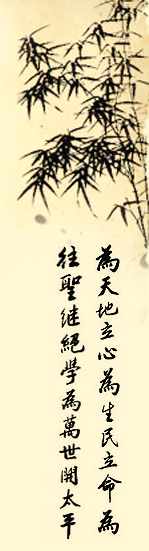 為天地立心為生民立命為
往聖继絕學為萬世開太平